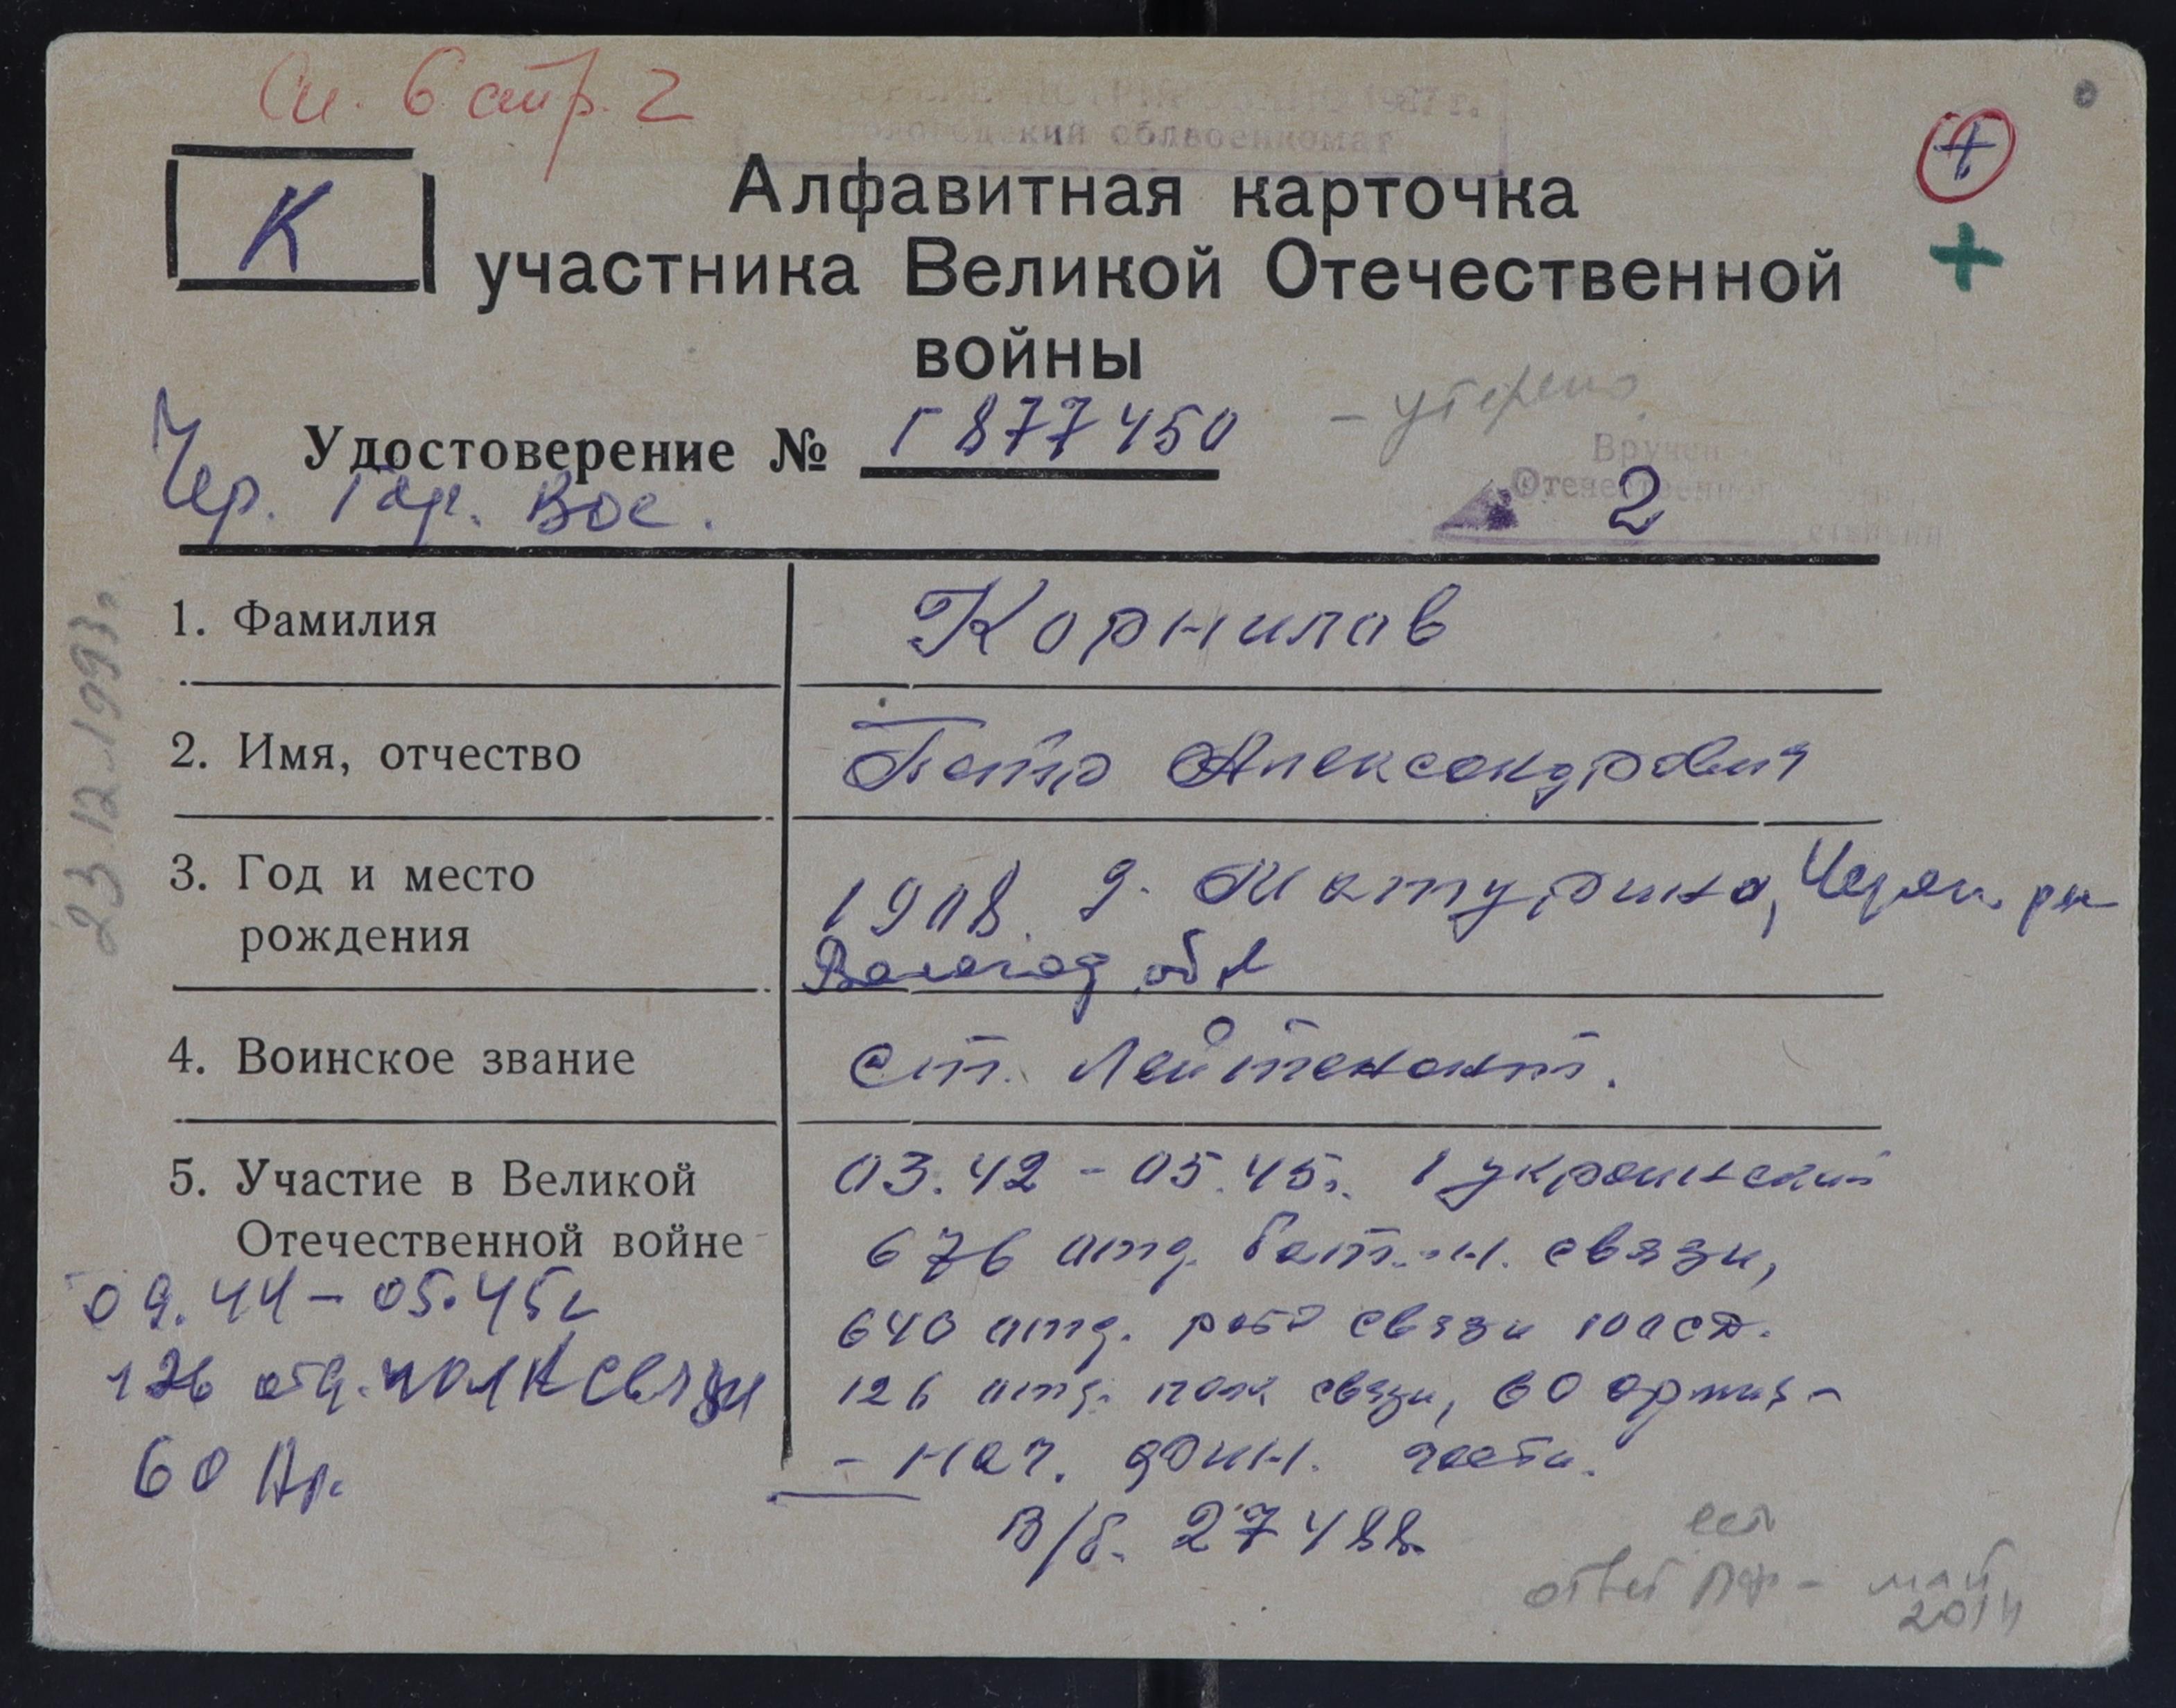 См. 6 стр. 2
Вологодский облвоенкомат
К
Алфавитная карточка
участника Великой Отечественной
войны
Удостоверение № Г 877450 - утеряно
Чер. Гор. Вое.
2
1. Фамилия Корнилов
2. Имя, отчество Петр Александрович
3. Год и место рождения 1908 д. Шатурино, Череп. р-н
Вологод. обл
4. Воинское звание ст. Лейтенант.
5. Участие в Великой
Отечественной войне
03.42 - 05.45г. 1 украинский
676 отд. бат-н. связи,
640 отд. рота связи
126 отд. полк связи, 60 армия -
- нач. части.
В/б. 27488
09.44 - 05.45г
126 отд. полк связи
60 Ар.
23.12.1993г.
есть
ответ ПФ - май
2014